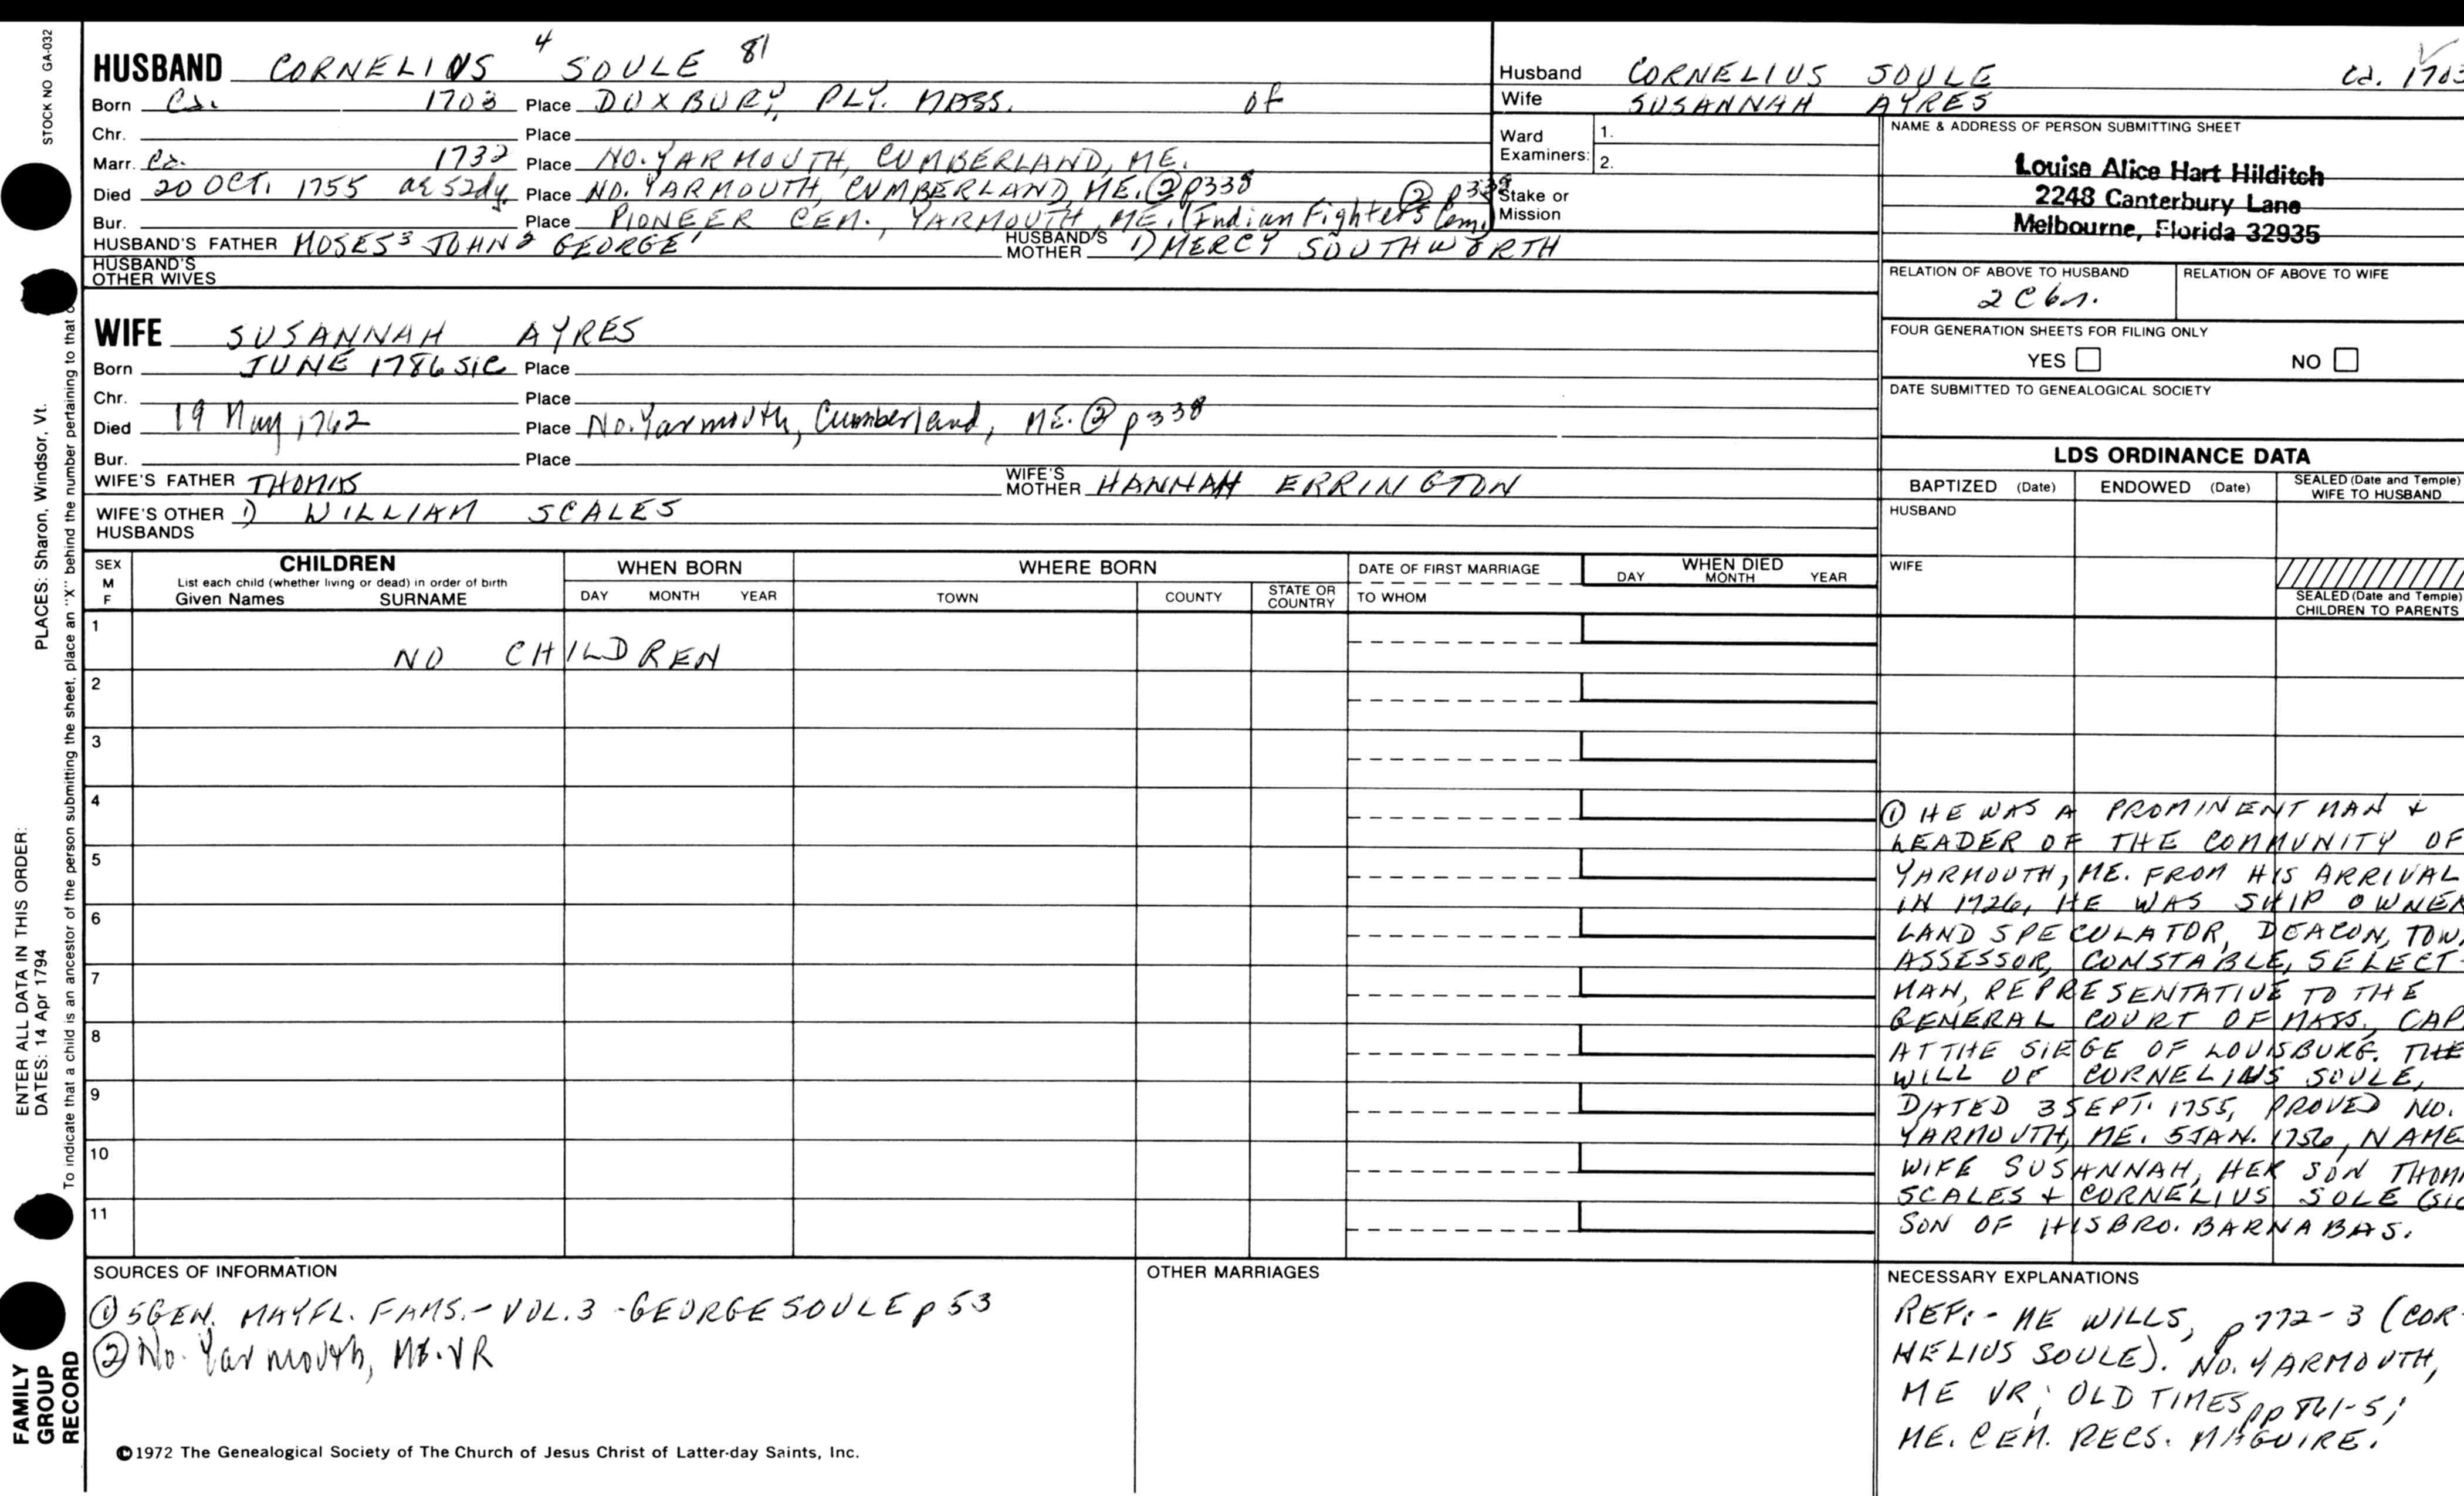 STOCK NO GA-032
PLACES: Sharon, Windsor, Vt.
ENTER ALL DATA IN THIS ORDER:
DATES: 14 Apr 1794
To indicate that a child is an ancestor of the person submitting the sheet, place an "X" behind the number pertaining to that
FAMILY
GROUP
RECORD
HUSBAND CORNELIUS 4 SOULE 81
Born Ca. 1703 Place DUXBURY, PLY. MASS. of
Chr. Place
Marr. Ca. 1732 Place NO. YARMOUTH, CUMBERLAND, ME.
Died 20 OCT. 1755 ae 52dy. Place NO. YARMOUTH, CUMBERLAND, ME. ② p338
Bur. Place PIONEER CEM., YARMOUTH, ME. (Indian Fighters Cem.) ② p338
HUSBAND'S FATHER MOSES3 JOHN2 GEORGE1 HUSBAND'S MOTHER 1) MERCY SOUTHWORTH
HUSBAND'S
OTHER WIVES
WIFE SUSANNAH AYRES
Born JUNE 1786 SIC Place
Chr. Place
Died 19 May 1762 Place No. Yarmouth, Cumberland, ME. ② p338
Bur. Place
WIFE'S FATHER THOMAS WIFE'S MOTHER HANNAH ERRINGTON
WIFE'S OTHER 1) WILLIAM SCALES
HUSBANDS
Husband CORNELIUS SOULE Ca. 1703
Wife SUSANNAH AYRES
Ward
Examiners:
1.
2.
Stake or
Mission
NAME & ADDRESS OF PERSON SUBMITTING SHEET
Louise Alice Hart Hilditch
2248 Canterbury Lane
Melbourne, Florida 32935
RELATION OF ABOVE TO HUSBAND RELATION OF ABOVE TO WIFE
2 C 6r.
FOUR GENERATION SHEETS FOR FILING ONLY
YES NO
DATE SUBMITTED TO GENEALOGICAL SOCIETY
LDS ORDINANCE DATA
BAPTIZED (Date) ENDOWED (Date) SEALED (Date and Temple)
WIFE TO HUSBAND
HUSBAND
WIFE
SEALED (Date and Temple)
CHILDREN TO PARENTS
SEX
M
F
CHILDREN
List each child (whether living or dead) in order of birth
Given Names SURNAME
WHEN BORN
DAY MONTH YEAR
WHERE BORN
TOWN COUNTY STATE OR COUNTRY
DATE OF FIRST MARRIAGE
TO WHOM
WHEN DIED
DAY MONTH YEAR
1 NO CHILDREN
2
3
4
5
6
7
8
9
10
11
① HE WAS A PROMINENT MAN +
LEADER OF THE COMMUNITY OF
YARMOUTH, ME. FROM HIS ARRIVAL
IN 1726, HE WAS SHIP OWNER
LAND SPECULATOR, DEACON, TOW
ASSESSOR, CONSTABLE, SELECT-
MAN, REPRESENTATIVE TO THE
GENERAL COURT OF MASS., CAP
AT THE SIEGE OF LOUISBURG. THE
WILL OF CORNELIUS SOULE,
DATED 3 SEPT. 1755, PROVED NO.
YARMOUTH, ME. 5 JAN. 1756, NAME
WIFE SUSANNAH, HER SON THOM
SCALES + CORNELIUS SOLE (SIC
SON OF HIS BRO. BARNABAS.
SOURCES OF INFORMATION
① 5 GEN. MAYFL. FAMS. - VOL. 3 - GEORGE SOULE p 53
② No. Yarmouth, ME. VR
OTHER MARRIAGES
NECESSARY EXPLANATIONS
REF: - ME WILLS, p 772-3 (COR-
NELIUS SOULE). NO. YARMOUTH,
ME VR; OLD TIMES pp 861-5;
ME. CEM. RECS. MAGUIRE.
©1972 The Genealogical Society of The Church of Jesus Christ of Latter-day Saints, Inc.